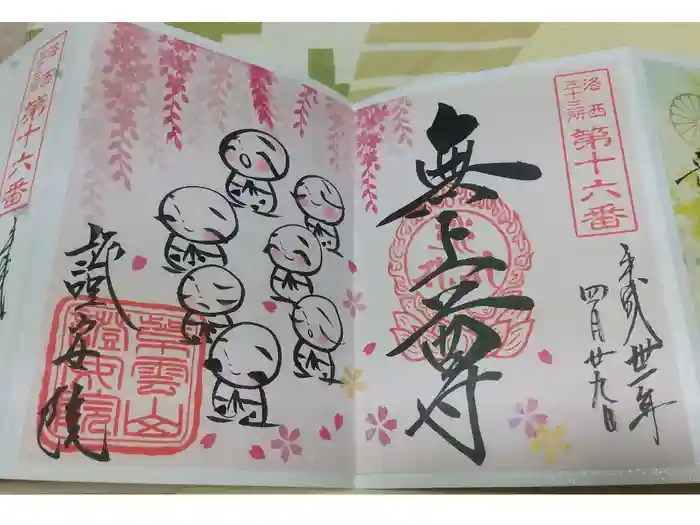 洛西
三十三所
第十六番
平成卅一年
四月廿九日
無上尊
證安院
第十六番